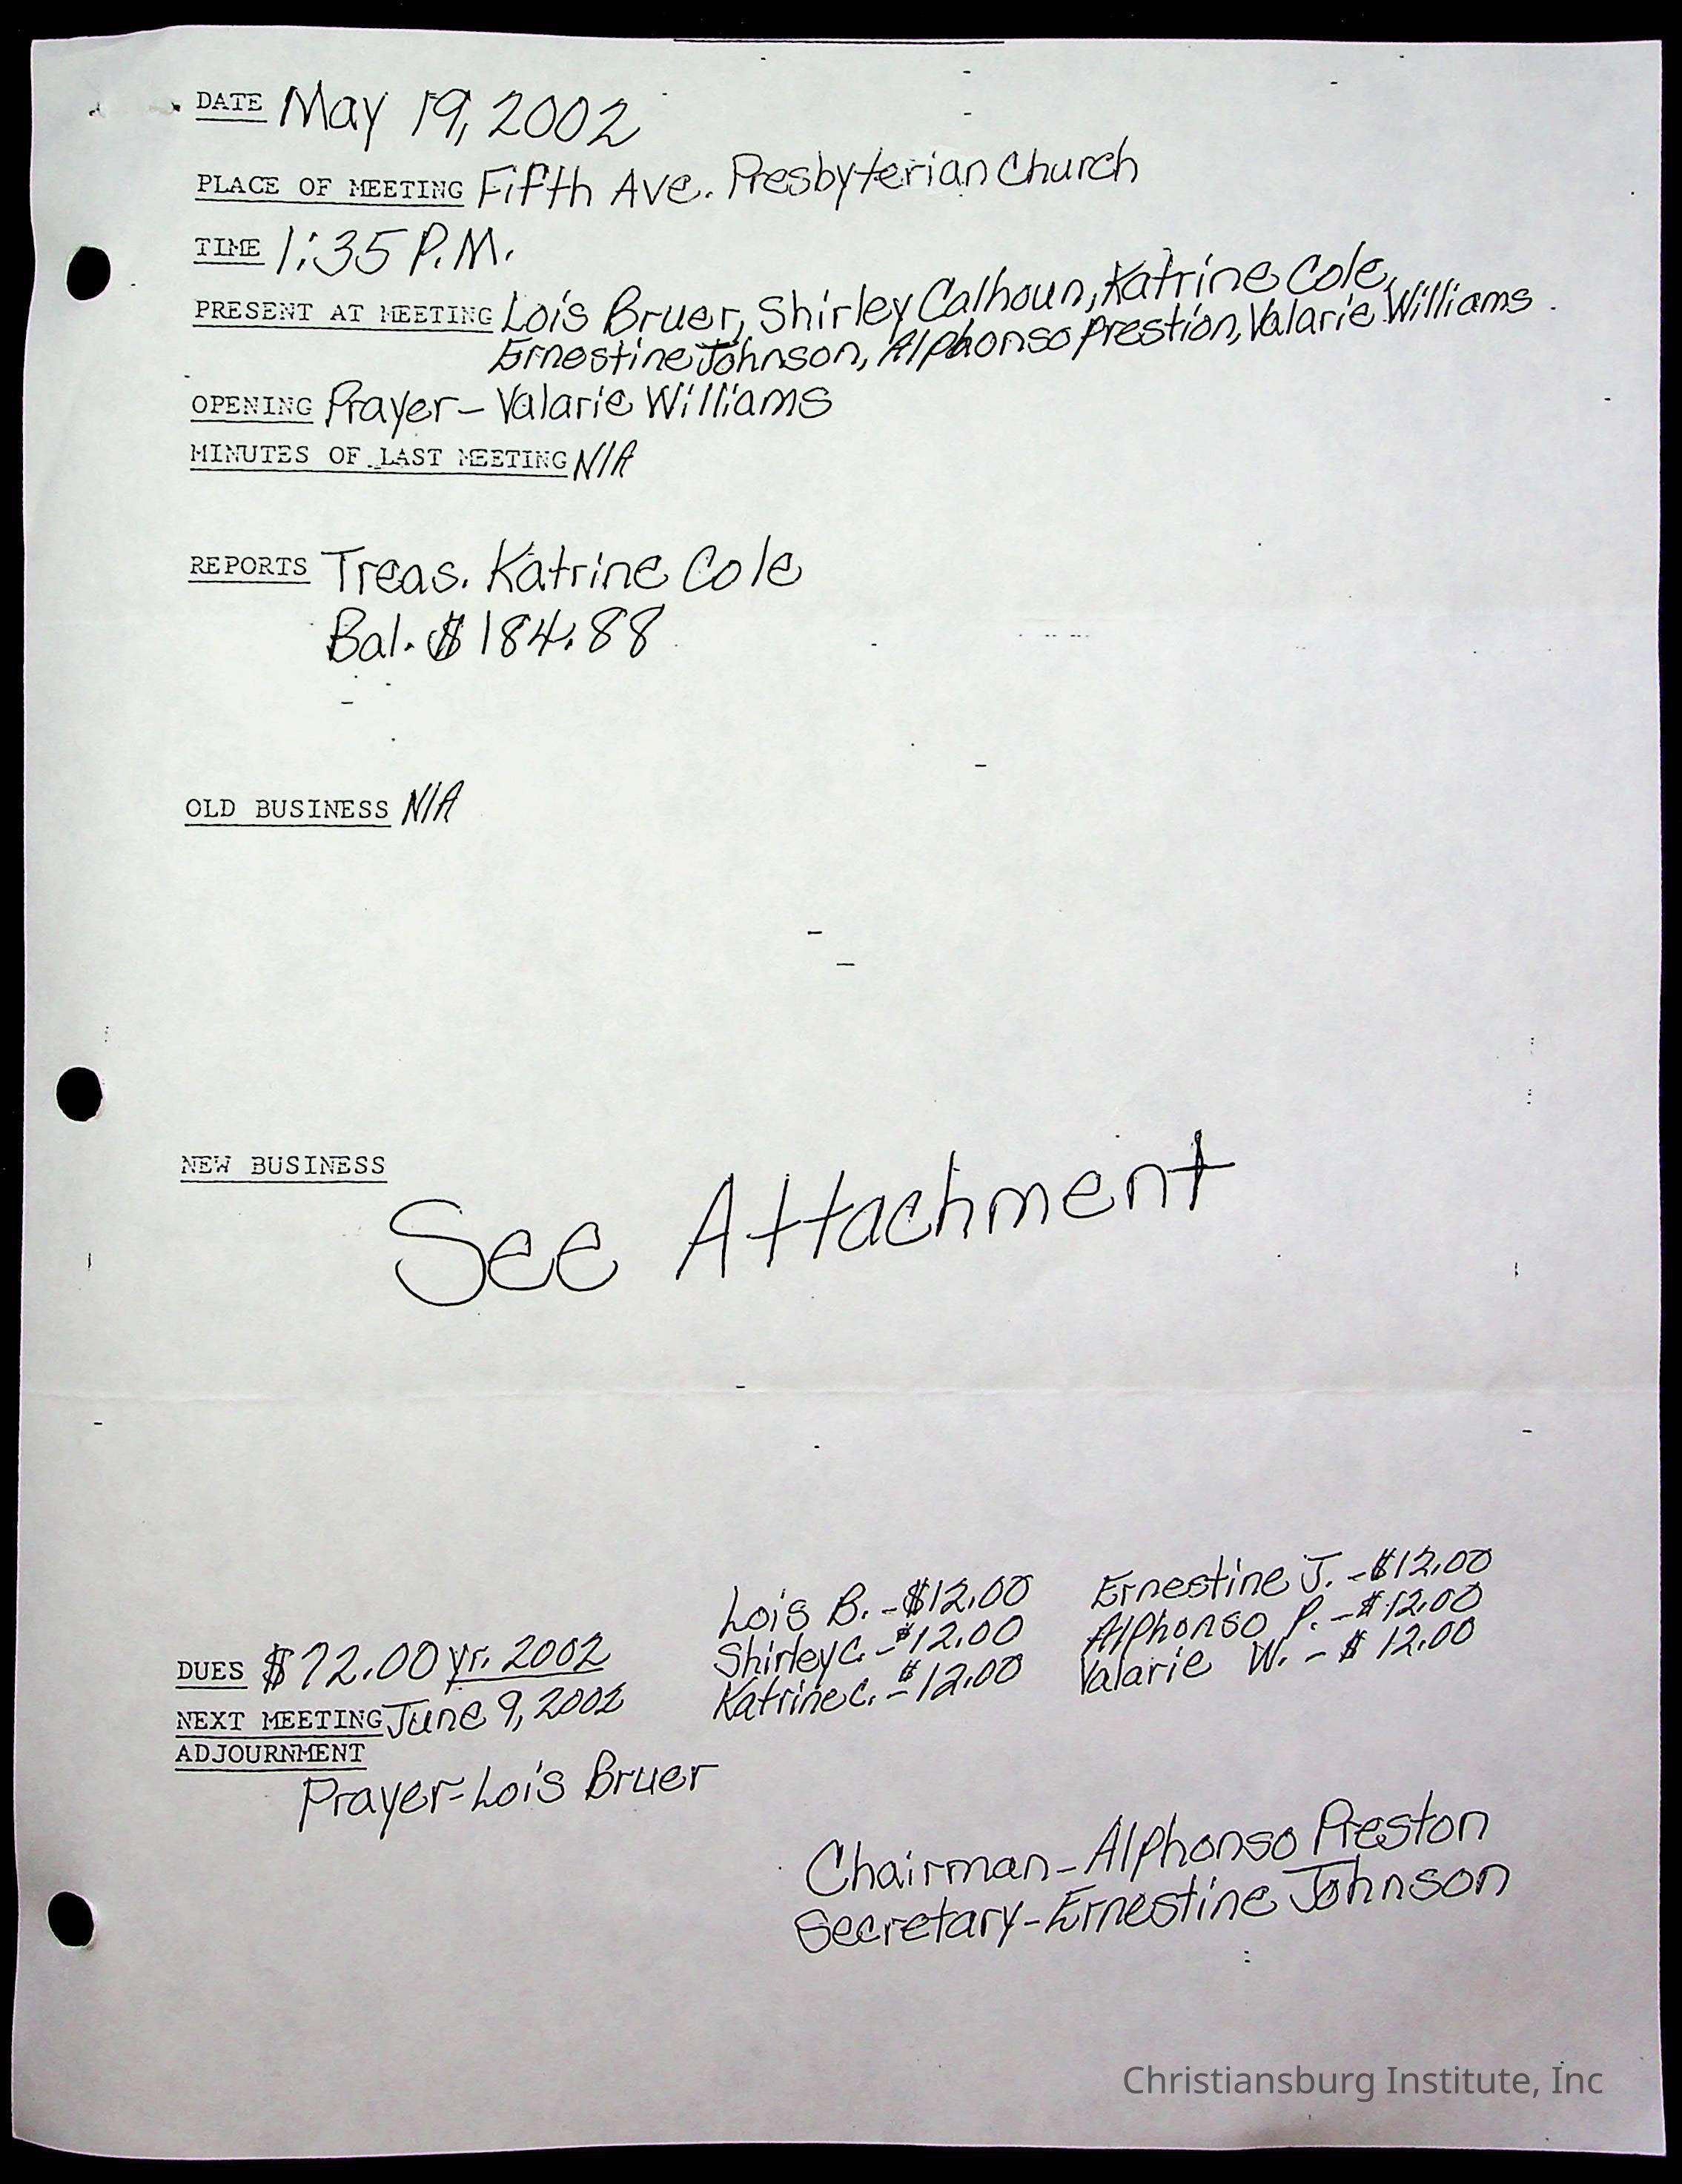 DATE May 19, 2002
PLACE OF MEETING Fifth Ave. Presbyterian Church
TIME 1:35 P.M.
PRESENT AT MEETING Lois Bruer, Shirley Calhoun, Katrine Cole,
Ernestine Johnson, Alphonso Prestion, Valarie Williams
OPENING Prayer - Valarie Williams
MINUTES OF LAST MEETING N/A
REPORTS Treas. Katrine Cole
Bal. $184.88
OLD BUSINESS N/A
NEW BUSINESS
See Attachment
Lois B. - $12.00 Ernestine J. - $12.00
Shirley C. - $12.00 Alphonso P. - $12.00
Katrine C. - $12.00 Valarie W. - $12.00
DUES $72.00 yr. 2002
NEXT MEETING June 9, 2002
ADJOURNMENT
Prayer - Lois Bruer
Chairman - Alphonso Preston
Secretary - Ernestine Johnson
Christiansburg Institute, Inc